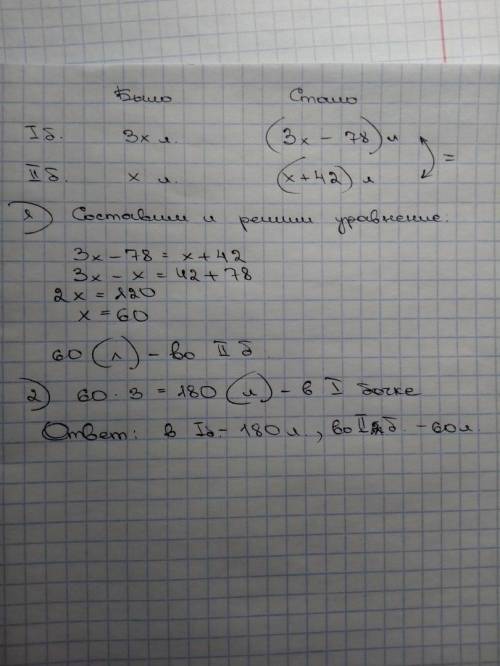 Было Стало
I б. 3x л. (3x - 78) л
II б. x л. (x + 42) л =
1) Составим и решим уравнение:
3x - 78 = x + 42
3x - x = 42 + 78
2x = 120
x = 60
60 (л) - во II б
2) 60 · 3 = 180 (л) - в I бочке
Ответ: в I б - 180 л., во II б. - 60 л.